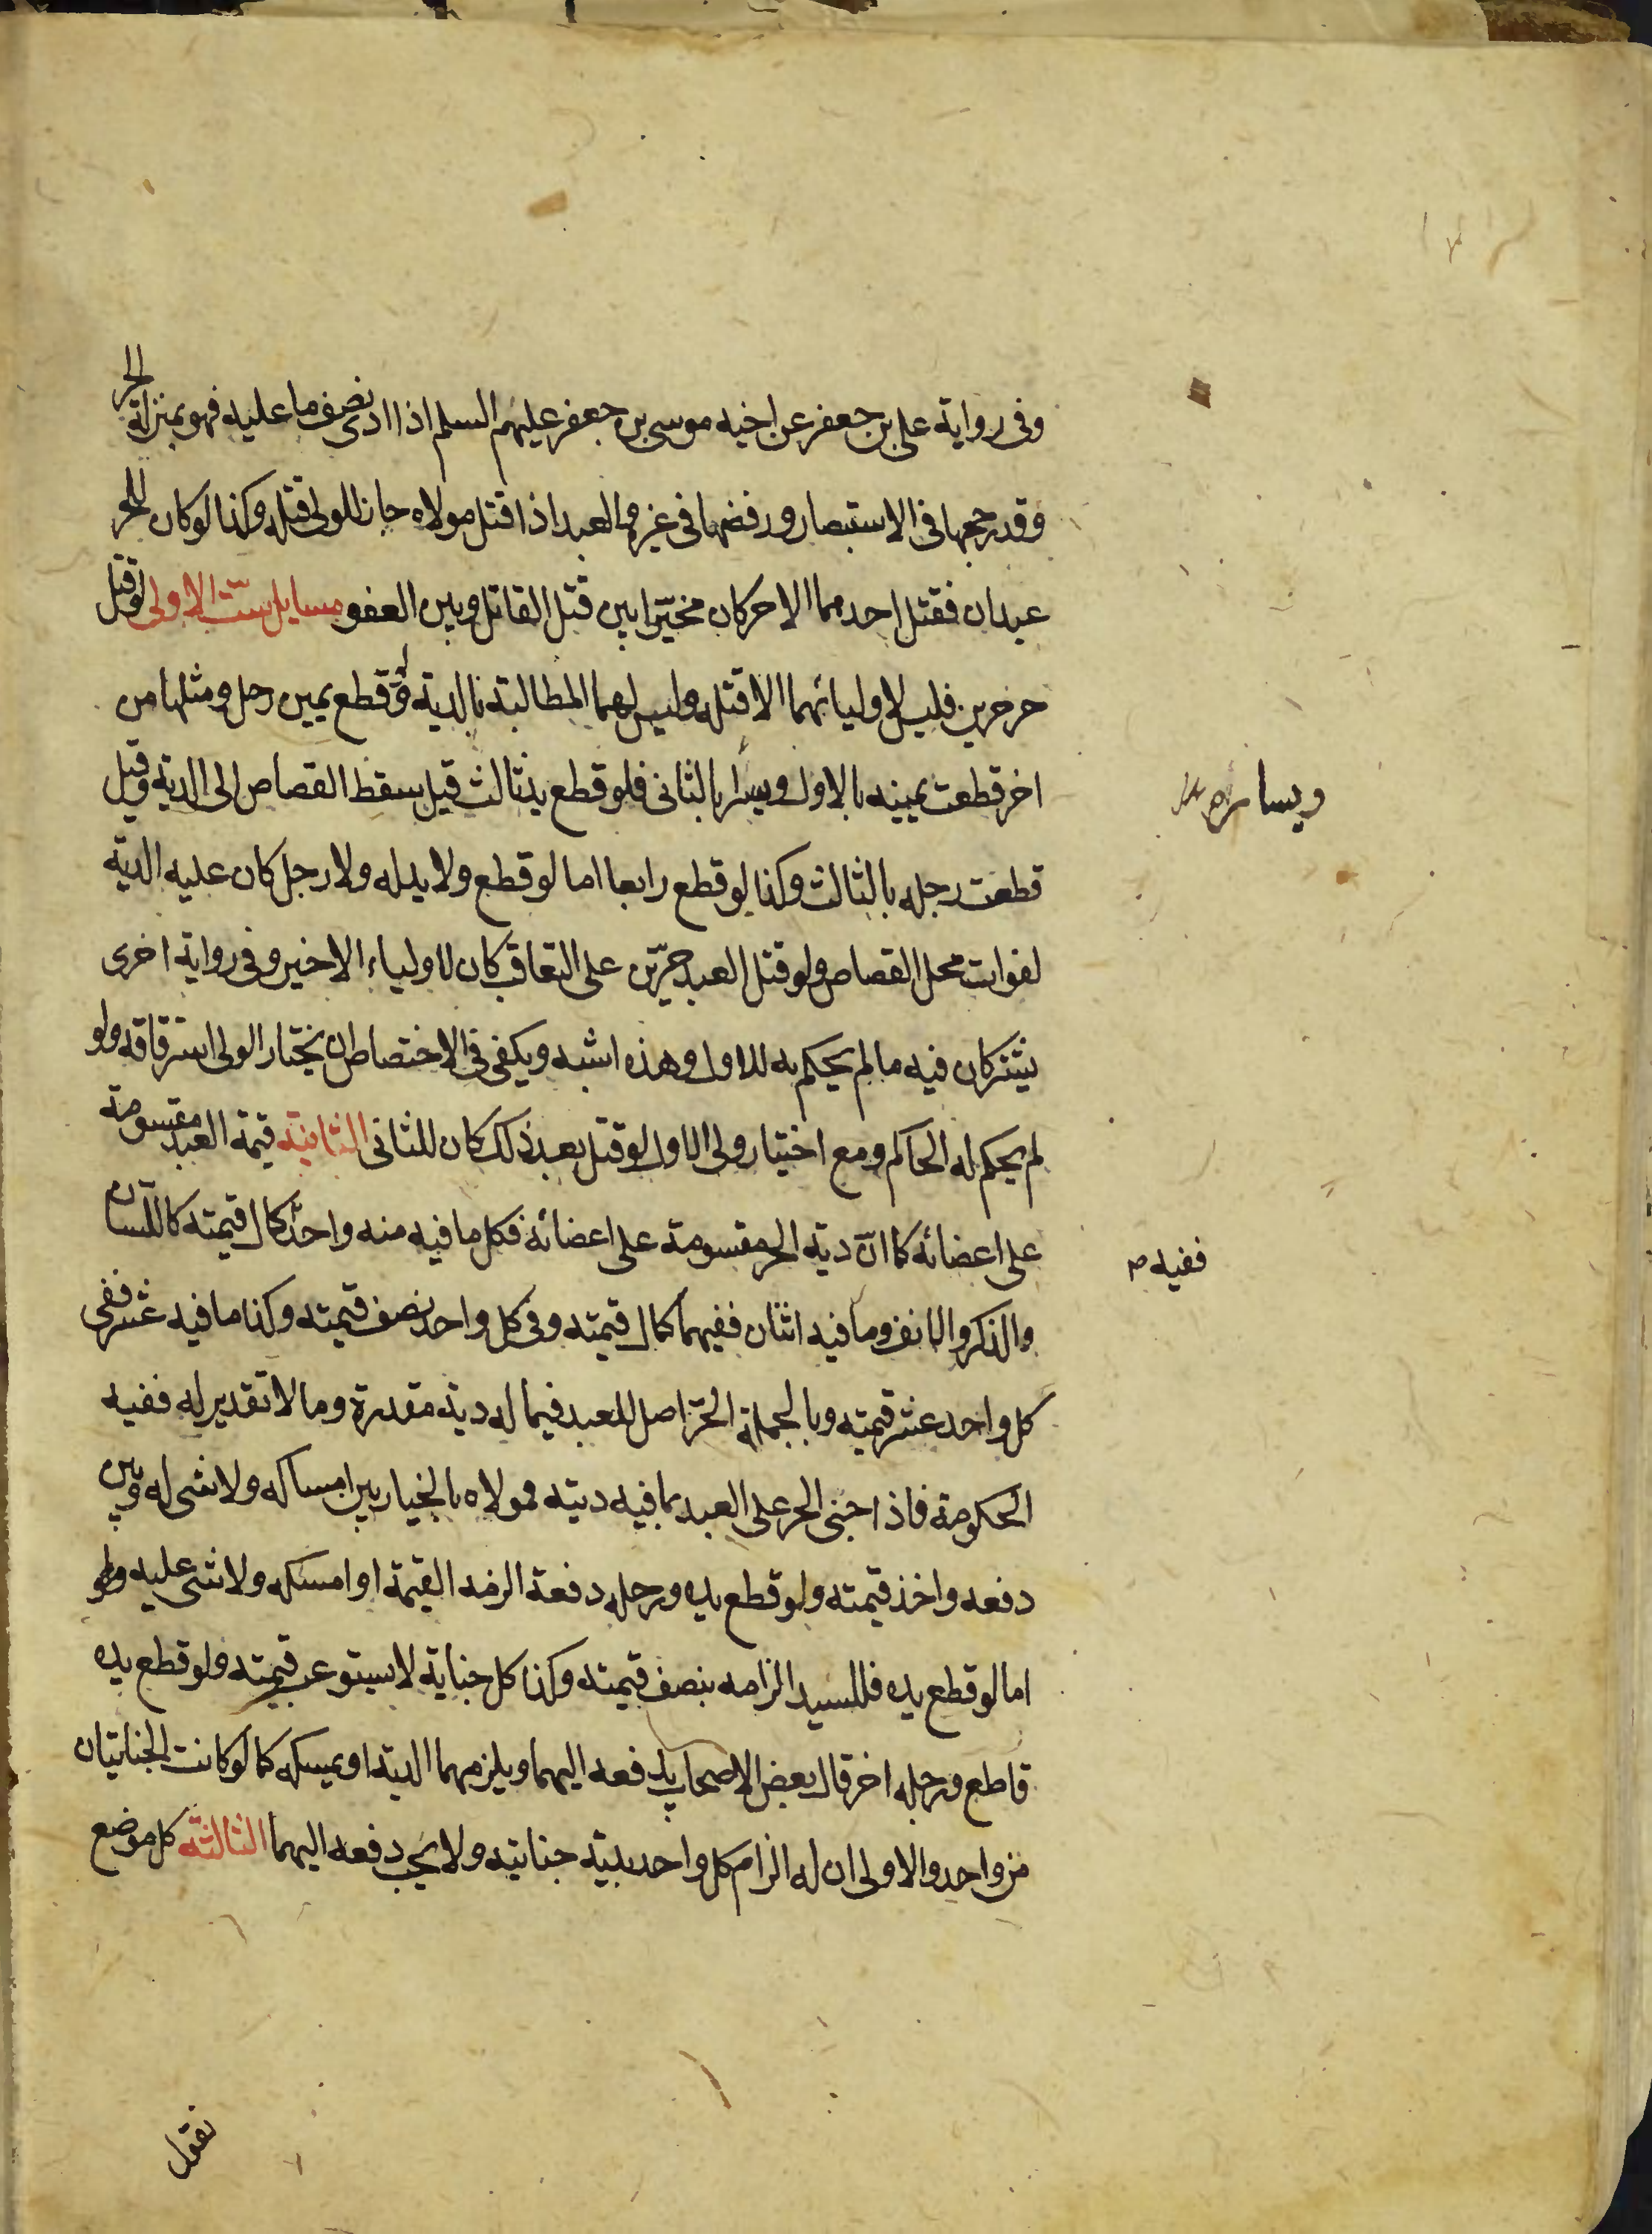 وفى رواية على بن جعفر عن اخيه موسى بن جعفر عليهم السلم اذا ادى نصف ما عليه فهو بمنزلة الحر
وقد رجحها فى الاستبصار ورفضها فى غيره والعبد اذا قتل مولاه جاز للولى قتله وكذا لو كان للحر
عبدان فقتل احدهما الاخر كان مخيّرا بين قتل القاتل وبين العفو مسايل ستّ الاولى لو قتل
حر حرين فليس لاوليائهما الا قتله وليس لهما المطالبة بالدية ولو قطع يمين رجل ومثلها من
اخر قطعت يمينه بالاول ويساره بالثانى فلو قطع يد ثالث قيل سقط القصاص الى الدية وقيل
قطعت رجله بالثالث وكذا لو قطع رابعا اما لو قطع ولا يد له ولا رجل كان عليه الدية
لفوات محل القصاص ولو قتل العبد حرّين على التعاقب كان لاولياء الاخير وفى رواية اخرى
يشتركان فيه ما لم يحكم به للاول وهذه اشبه ويكفى فى الاختصاص ان يختار الولى استرقاقه ولو
لم يحكم له الحاكم ومع اختيار ولى الاول لو قتل بعد ذلك كان للثانى الثانية قيمة العبد مقسومة
على اعضائه كما انّ دية الحر مقسومة على اعضائه فكل ما فيه منه واحد كمال قيمته كاللسان
والذكر والانف وما فيه اثنان ففيهما كمال قيمته وفى كل واحد نصف قيمته وكذا ما فيه عشر ففى
كل واحد عشر قيمته وبالجملة الحرّ اصل للعبد فيما له دية مقدرة وما لا تقدير له ففيه
الحكومة فاذا جنى الحر على العبد بما فيه ديته فمولاه بالخيار بين امساكه ولا شى له وبين
دفعه واخذ قيمته ولو قطع يده ورجله دفعة الزمه القيمة او امسكه ولا شى عليه ولو
اما لو قطع يده فللسيد الزامه بنصف قيمته وكذا كل جناية لا يستوعب قيمته ولو قطع يده
قاطع ورجله اخر قال بعض الاصحاب يدفعه اليهما ويلزمهما الدية او يمسكه كما لو كانت الجنايتان
من واحد والاولى ان له الزام كل واحد بدية جنايته ولا يجب دفعه اليهما الثالثة كل موضع
نقول
ويساره
ففيه